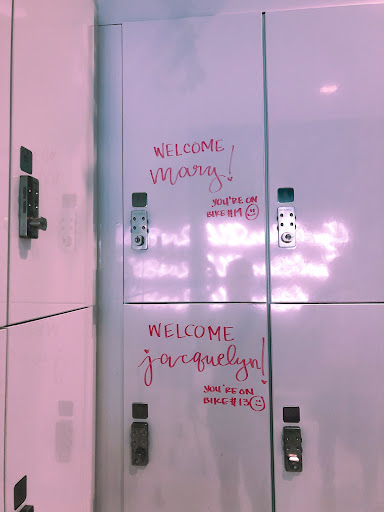 WELCOME
mary!
YOU'RE ON
BIKE #19
WELCOME
jacquelyn!
YOU'RE ON
BIKE #13